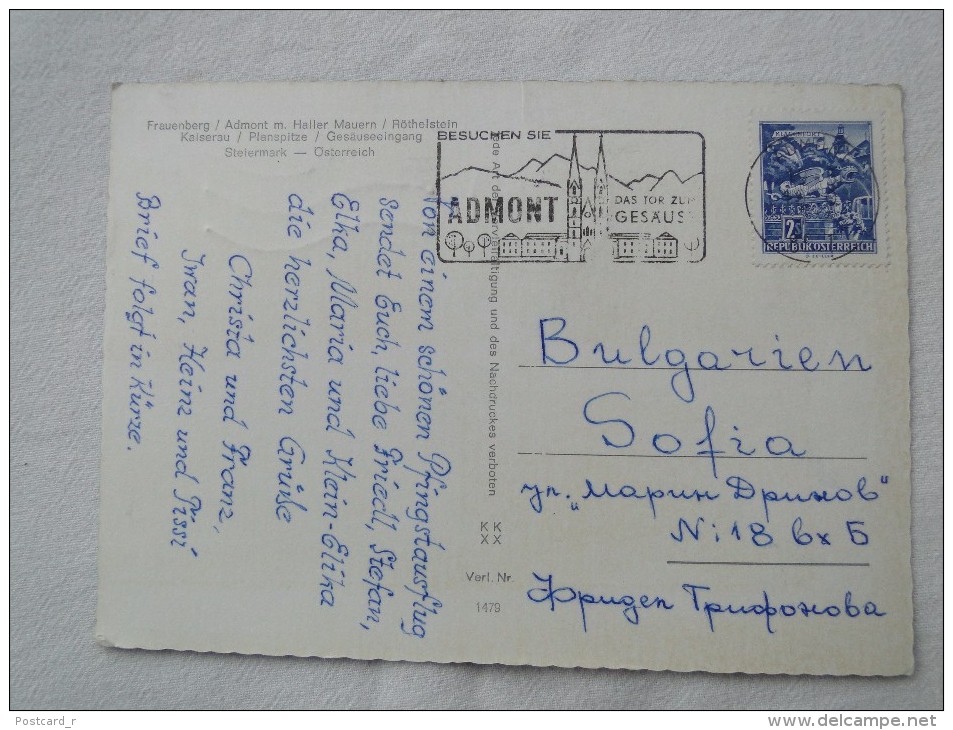 Frauenberg / Admont m. Haller Mauern / Röthelstein
Kaiserau / Planspitze / Gesäuseeingang
Steiermark — Österreich
Von einem schönen Pfingstausflug
sendet Euch, liebe Friedl, Stefan,
Elka, Maria und Klein-Elika
die herzlichsten Grüße
Christa und Franz,
Iwan, Heinz und Pissi
Brief folgt in Kürze.
Jede Art der Vervielfältigung und des Nachdruckes verboten
KK
XX
Verl. Nr.
1479
BESUCHEN SIE
ADMONT
DAS TOR ZUM
GESÄUSE
KLAGENFURT
2S
REPUBLIK ÖSTERREICH
Bulgarien
Sofia
ул. „Марин Дринов"
N: 18 вх Б
Фридел Трифонова
Postcard_r
www.delcampe.net